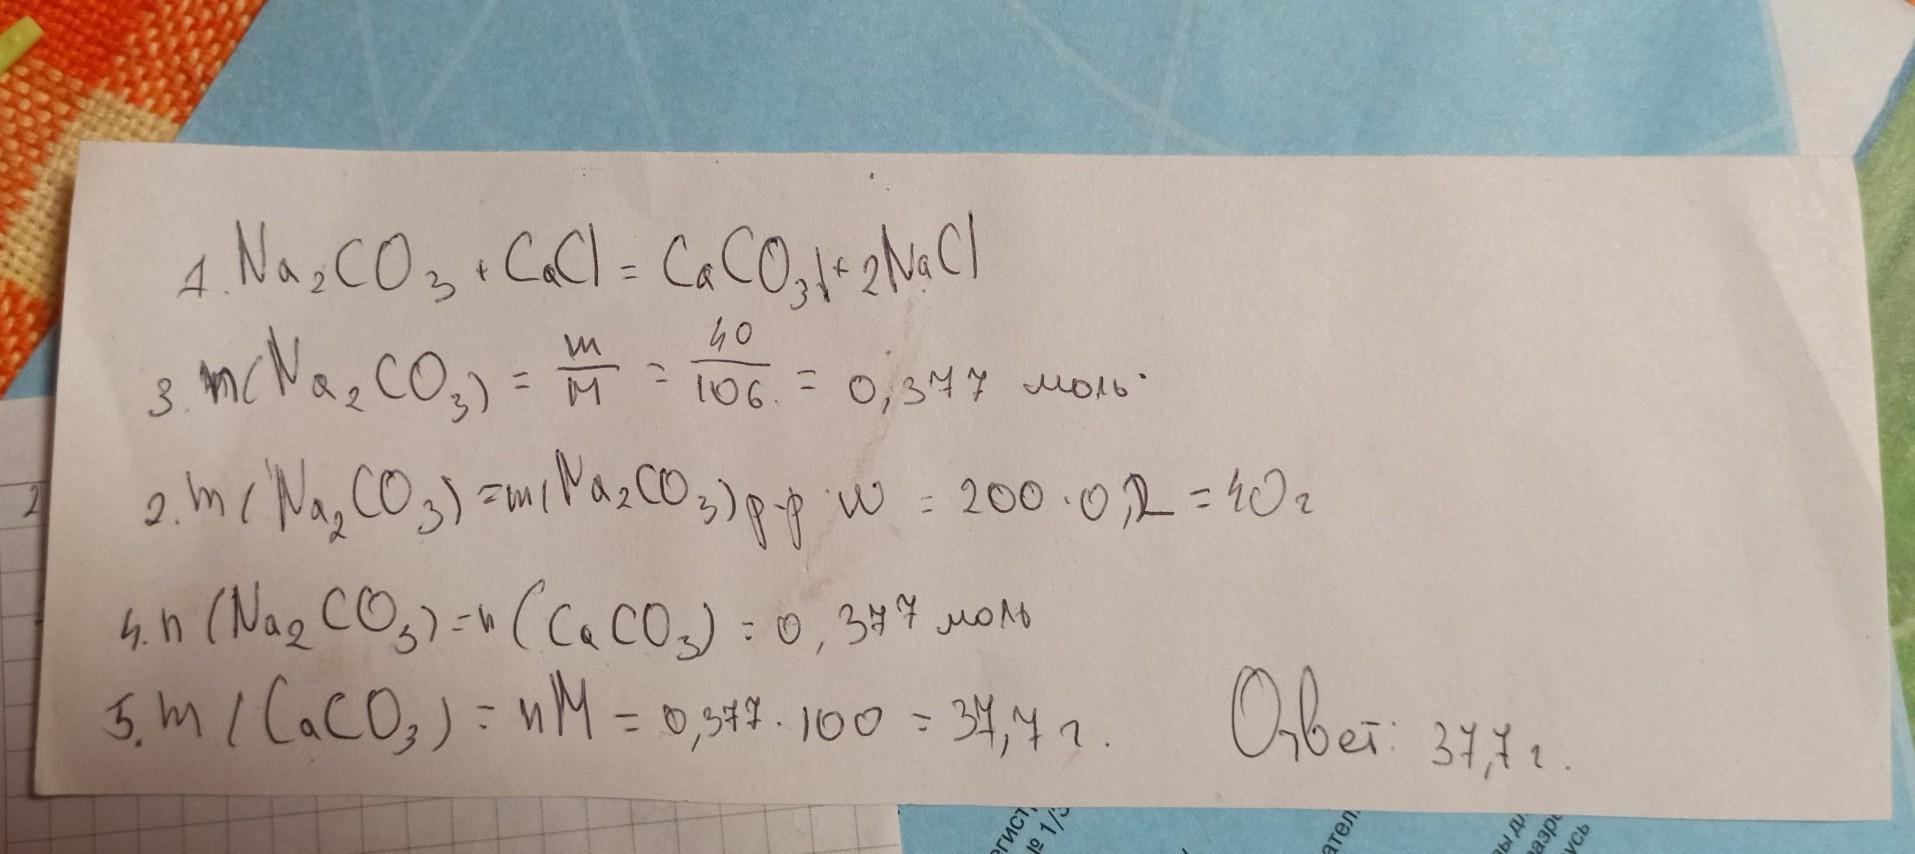 1. Na₂CO₃ + CaCl = CaCO₃↓ + 2NaCl
3. n(Na₂CO₃) = m/M = 40/106 = 0,377 моль.
2. m(Na₂CO₃) = m(Na₂CO₃)р-р · w = 200 · 0,2 = 40 г
4. n(Na₂CO₃) = n(CaCO₃) = 0,377 моль
5. m(CaCO₃) = nM = 0,377 · 100 = 37,7 г.
Ответ: 37,7 г.
2
№ 1/3